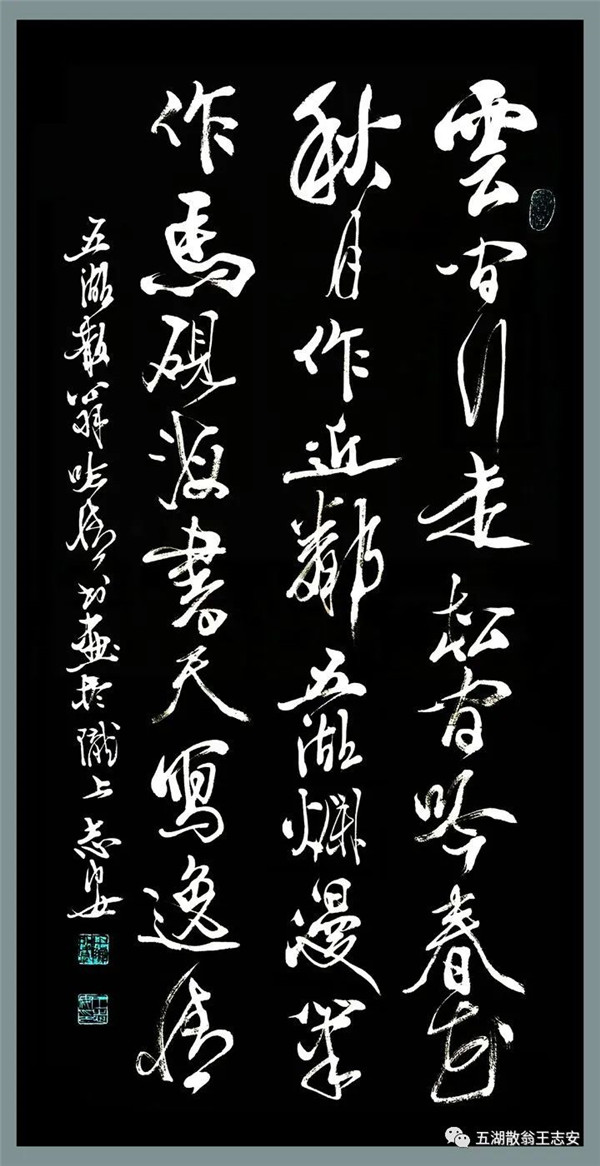 雲間行走松間吟春花
秋月作近鄰五湖爛漫筆
作馬硯海書天寫逸情
五湖散翁吟情畫於隴上志安
五湖散翁王志安